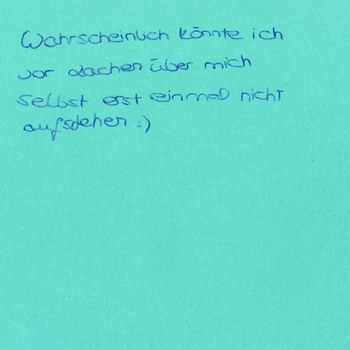 Wahrscheinlich könnte ich
vor Lachen über mich
selbst erst einmal nicht
aufstehen :)